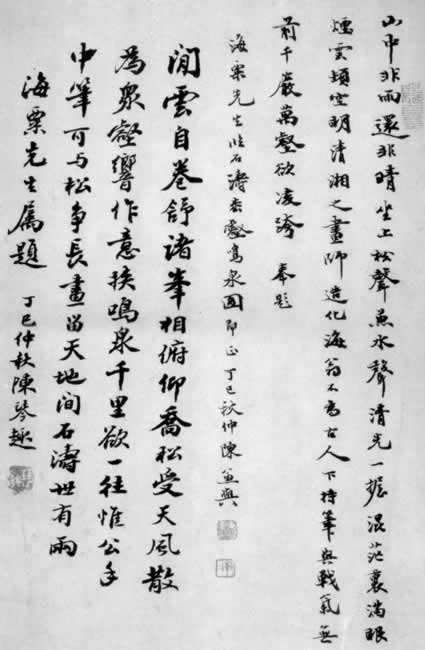 山中非雨還非晴坐上松聲兼水聲清光一握混茫裏滿眼
煙雲頓空明清湘之畫師造化海翁不為古人下持筆與戰氣無
前千巖萬壑欲凌跨 奉題
海粟先生臨石濤松壑鳴泉圖即正丁巳秋仲陳兼與
閒雲自卷舒諸峯相俯仰喬松受天風散
為眾壑響作意挾鳴泉千里欲一往惟公手
中筆可与松爭長畫留天地間石濤世有兩
海粟先生屬題 丁巳仲秋陳琴趣